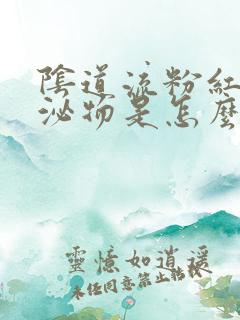 陰道流粉紅
泌物是怎麼
靈憶如逍遥
未经同意禁止转载